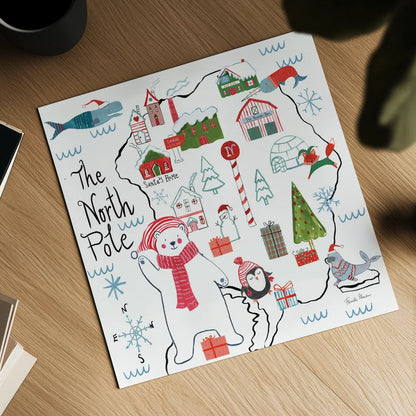 The
North
Pole
Santa's Home
N
N
E
W
S